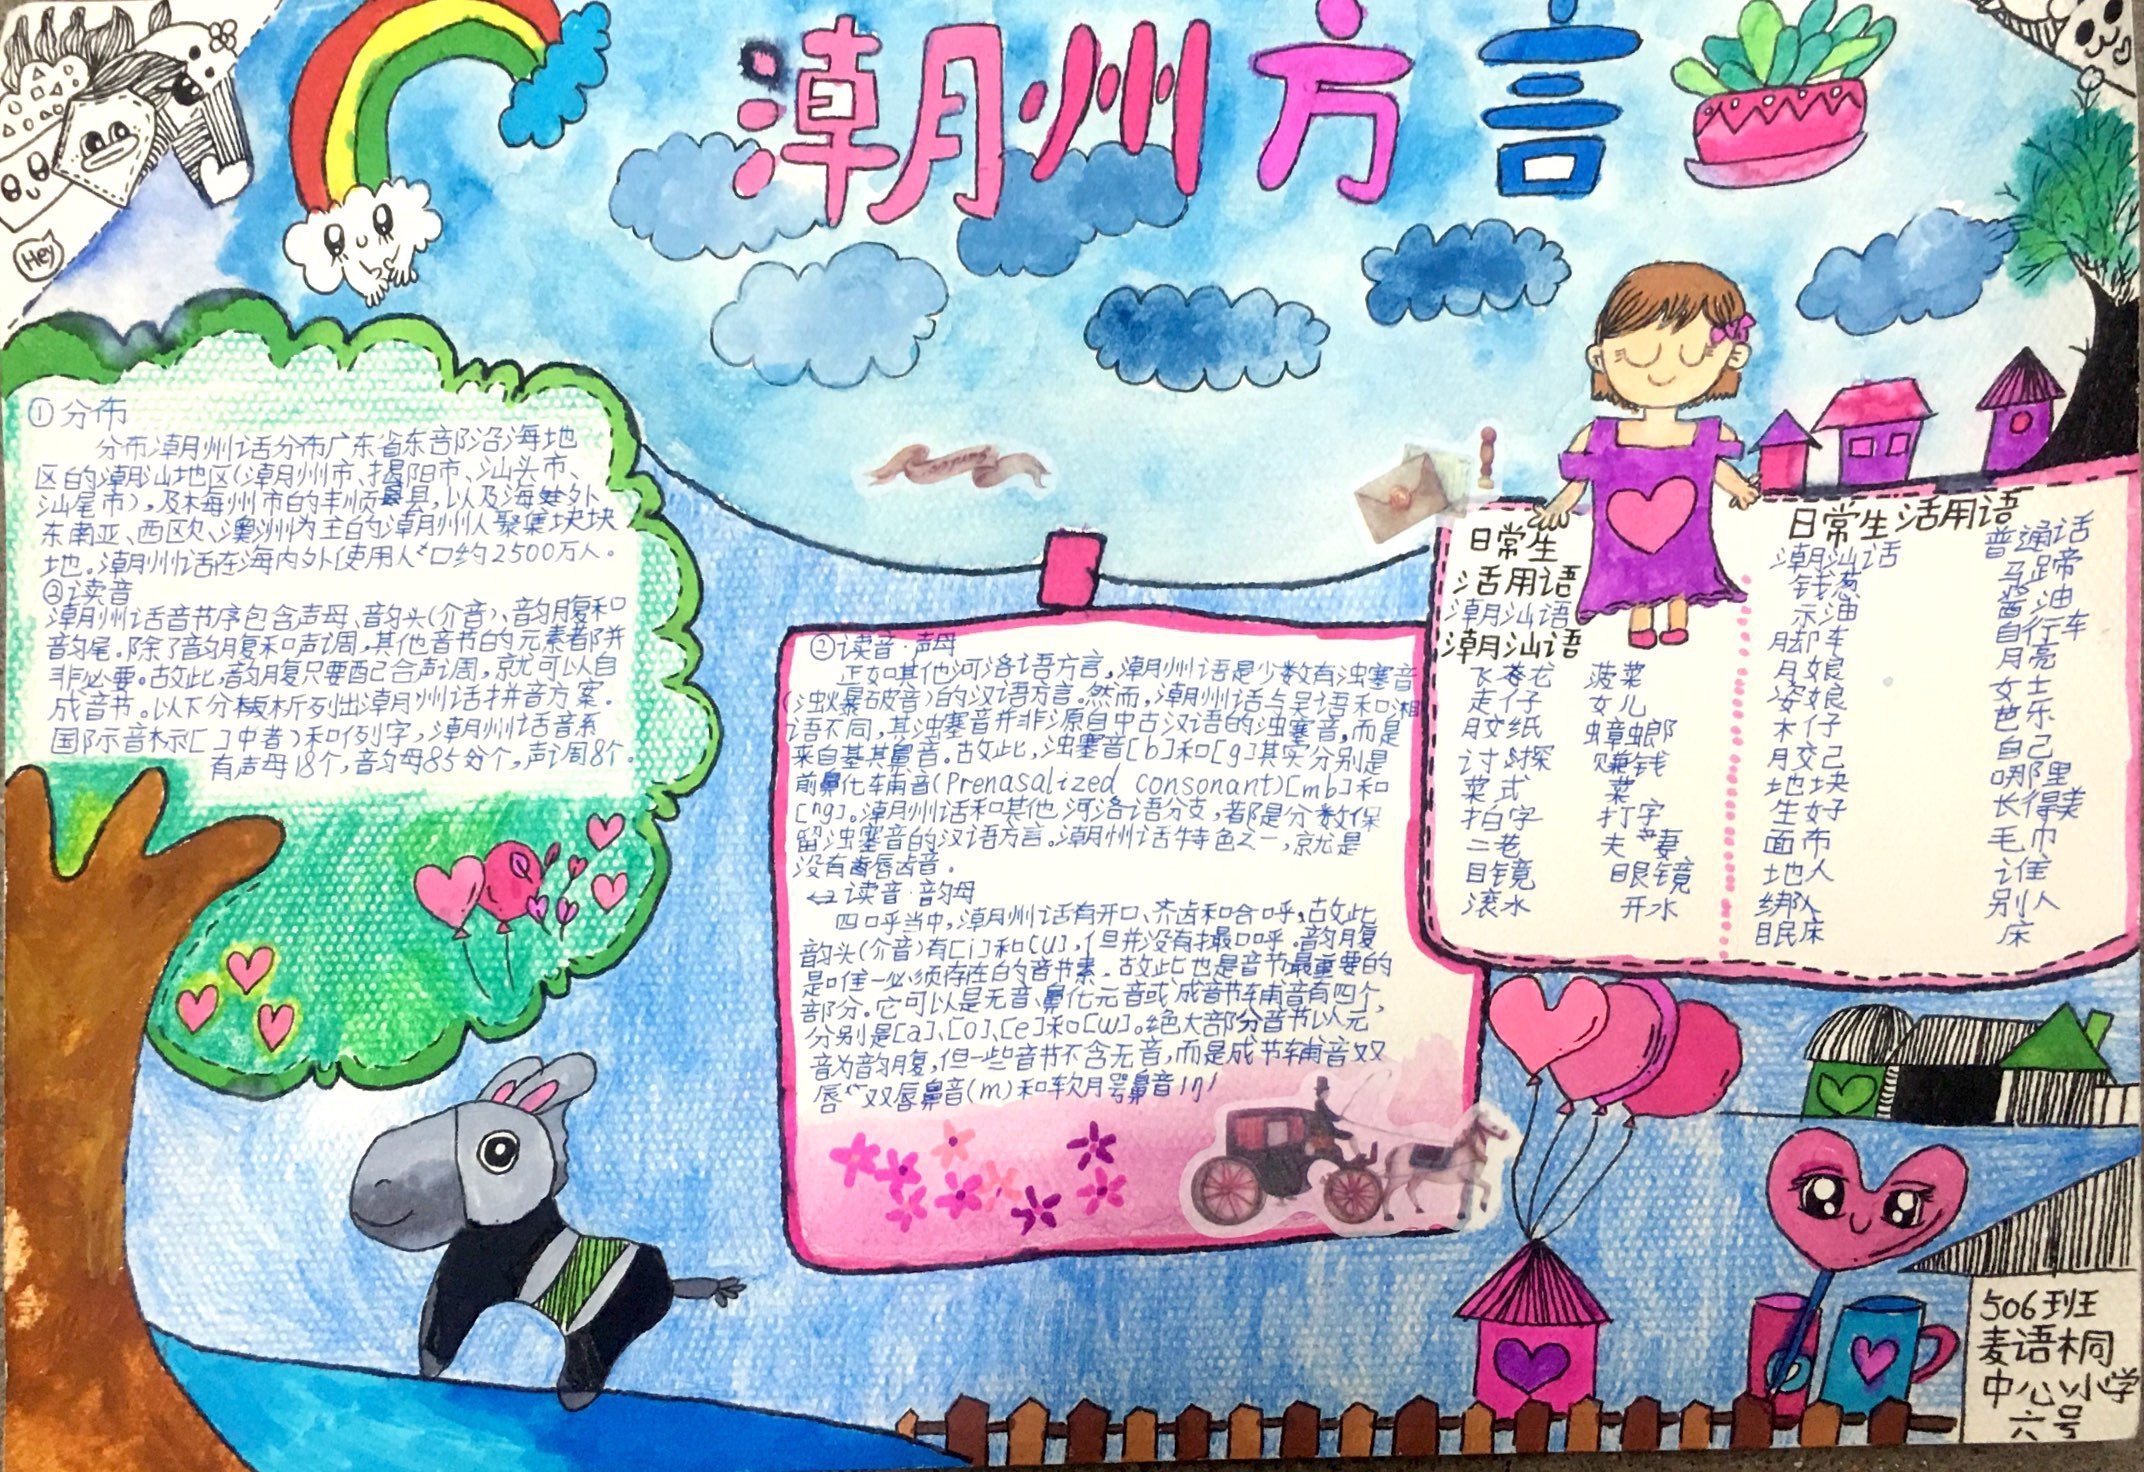 潮州方言
Hey
①分布
分布潮州话分布广东省东部沿海地
区的潮汕地区(潮州市、揭阳市、汕头市、
汕尾市),及梅州市的丰顺县,以及海外
东南亚、西欧、澳洲为主的潮州人聚集块块
地。潮州话在海内外使用人口约2500万人。
②读音
潮州话音节序包含声母、韵头(介音)、韵腹和
韵尾.除了韵腹和声调,其他音节的元素都并
非必要。故此,韵腹只要配合声调,就可以自
成音节。以下分析列出潮州话拼音方案.
国际音标示[ ]中者)和例字,潮州话音系
有声母18个,韵母85个,声调8个.
②读音·声母
正如其他河洛语方言,潮州语是少数有浊塞音
(浊爆破音)的汉语方言。然而,潮州话与吴语和湘
语不同,其浊塞音并非源自中古汉语的浊塞音,而是
来自基其鼻音。故此,浊塞音[b]和[g]其实分别是
前鼻化辅音(Prenasalized consonant)[mb]和
[ng]。潮州话和其他河洛语分支,都是分数保
留浊塞音的汉语方言。潮州话特色之一,就是
没有齿唇齿音.
读音·韵母
四呼当中,潮州话有开口、齐齿和合呼,故此
韵头(介音)有[i]和[u],但并没有撮口呼.韵腹
是唯一必须存在的音节素.故此也是音节最重要的
部分.它可以是无音、鼻化元音或成音节辅音有四个,
分别是[a]、[o]、[e]和[w]。绝大部分音节以元
音为韵腹,但一些音节不含无音,而是成节辅音双
唇双唇鼻音(m)和软腭鼻音
日常生
活用语
潮汕语
潮汕语
飞龙 菠菜
走仔 女儿
胶纸 蟑螂
讨探 赚钱
菜式 菜
拍字 打字
二老 夫妻
目镜 眼镜
滚水 开水
日常生活用语
潮汕话 普通话
钱葱 马蹄
示油 酱油
脚车 自行车
月娘 月亮
姿娘 女士
木仔 芭乐
胶己 自己
地块 哪里
生好 长得美
面布 毛巾
地人 谁
绑人 别人
眠床 床
506班
麦语桐
中心小学
六号